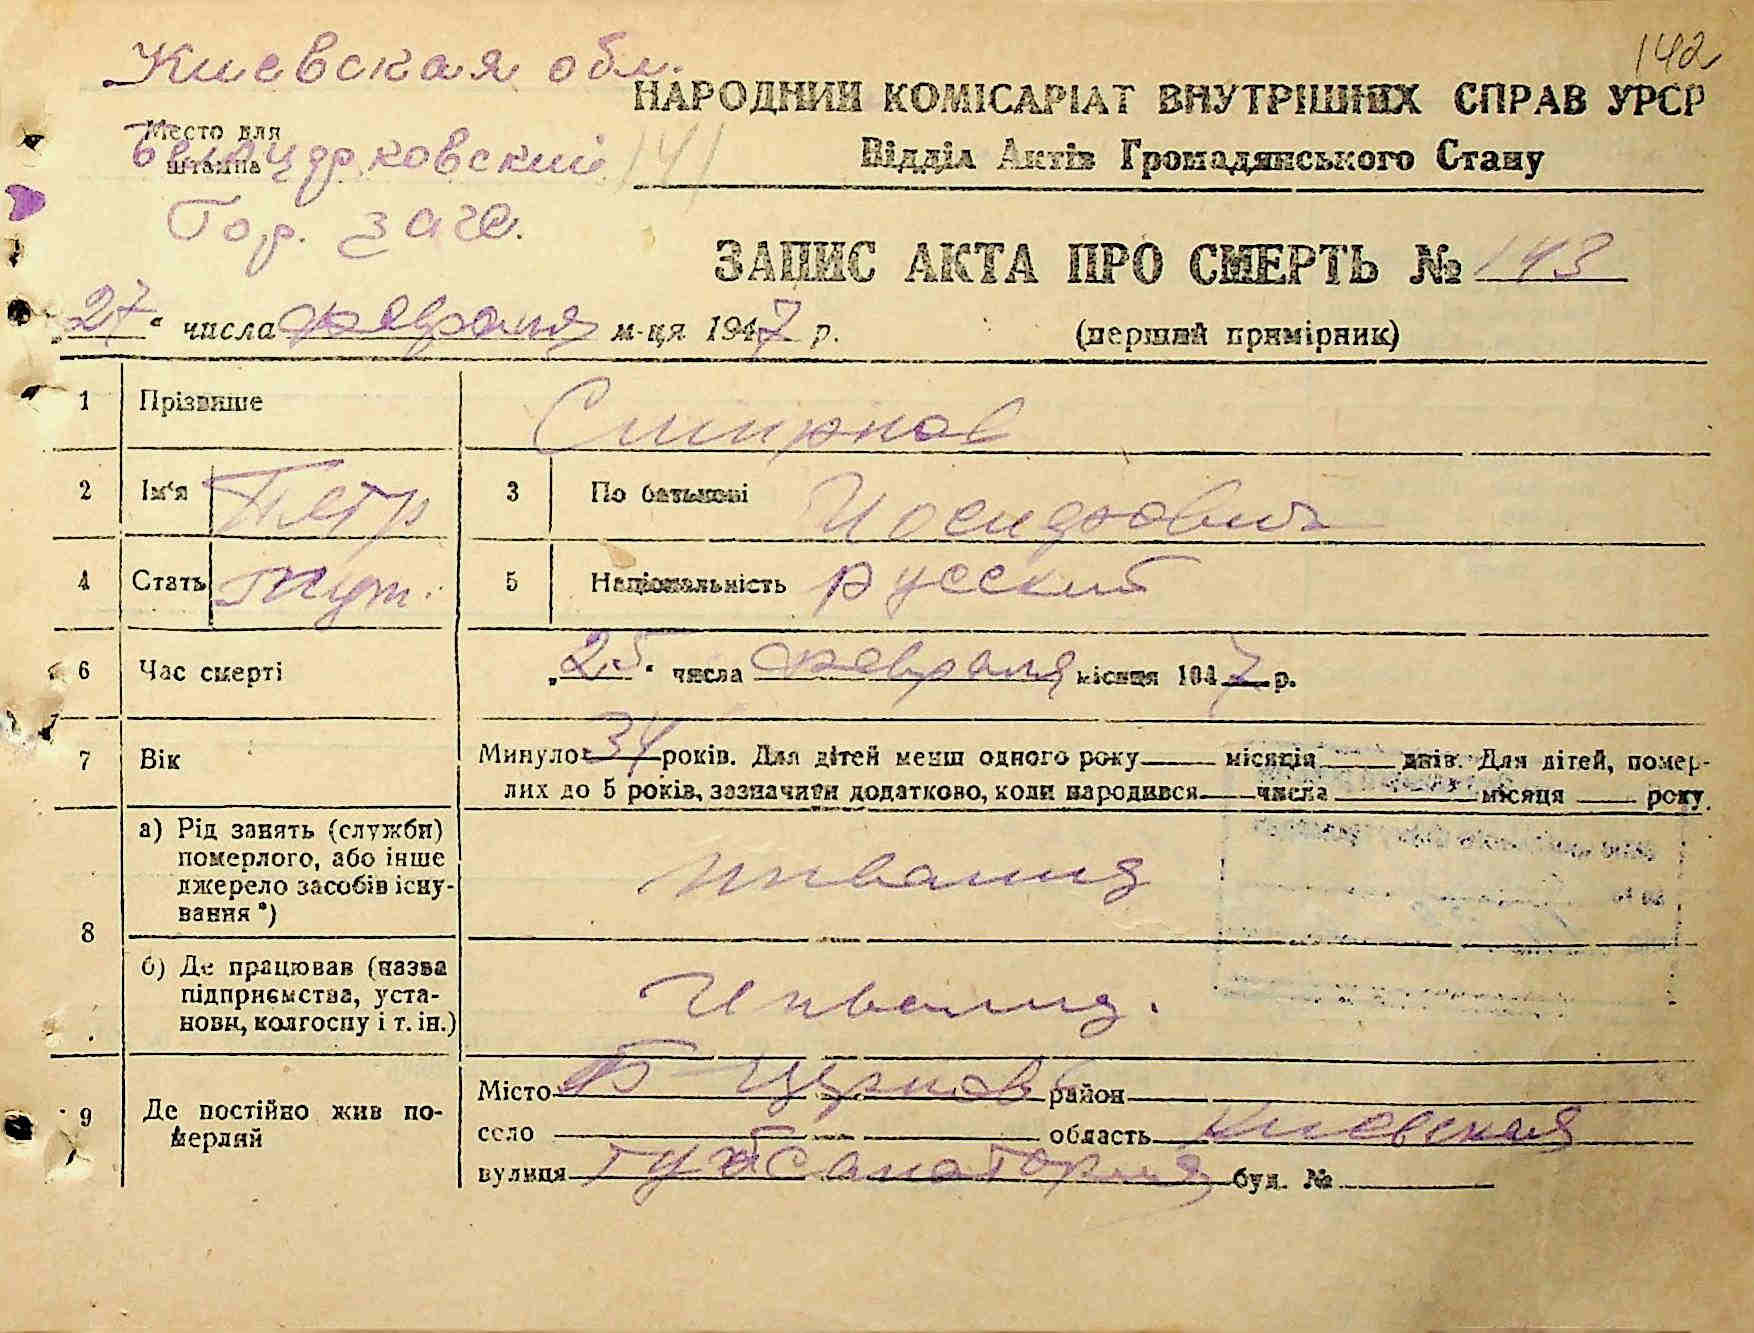 Киевская обл.
142
НАРОДНИЙ КОМІСАРІАТ ВНУТРІШНІХ СПРАВ УРСР
Место для
штампа
Белоцерковский
141
Відділ Актів Громадянського Стану
Гор. загс.
ЗАПИС АКТА ПРО СМЕРТЬ № 143
„27“ числа февраля м-ця 1947 р.
(перший примірник)
1 Прізвище Смирнов
2 Ім'я Петр 3 По батькові Иосифович
4 Стать муж. 5 Національність русский
6 Час смерті „25“ числа февраля місяця 1947 р.
7 Вік Минуло 34 років. Для дітей менш одного року місяців днів. Для дітей, помер-
лих до 5 років, зазначити додатково, коли народився числа місяця року.
8 а) Рід занять (служби)
померлого, або інше
джерело засобів існу-
вання *)
инвалид
б) Де працював (назва
підприємства, уста-
нови, колгоспу і т. ін.)
Инвалид.
9 Де постійно жив по-
мерлий
Місто Б-Церковь район
село область Киевская
вулиця тубсанатория буд. №